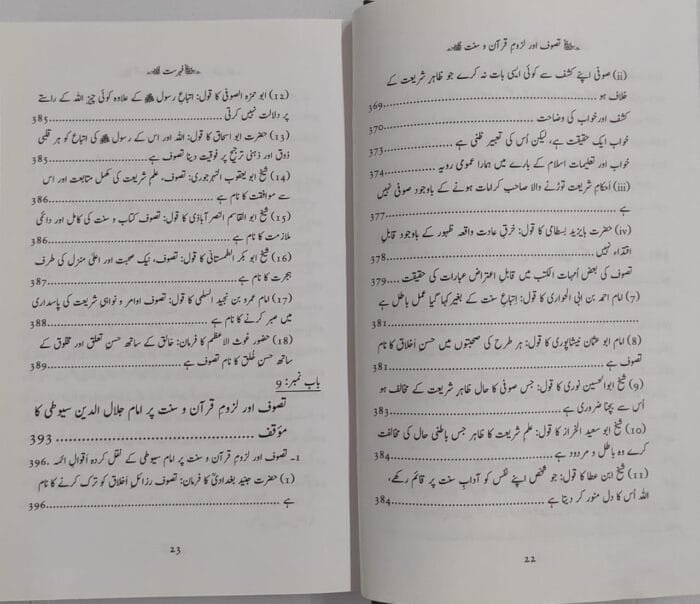 تصوف اور لزومِ قرآن و سنت
(ii) صوفی اپنے کشف سے کوئی ایسی بات نہ کرے جو ظاہر شریعت کے
خلاف ہو ........................ 369
کشف اور خواب کی وضاحت ........................ 370
خواب ایک حقیقت ہے، لیکن اُس کی تعبیر ظنی ہے ........................ 373
خواب اور تعلیمات اسلام کے بارے میں ہمارا عمومی رویہ ........................ 374
(iii) اَحکامِ شریعت توڑنے والا صاحب کرامات ہونے کے باوجود صوفی نہیں
ہے ........................ 377
(iv) حضرت بایزید بسطامی کا قول: خرقِ عادت واقعہ ظہور کے باوجود قابلِ
اقتداء نہیں ........................ 378
تصوف کی بعض اُمہات الکتب میں قابلِ اعتراض عبارات کی حقیقت .... 379
(7) امام احمد بن ابی الحواری کا قول: اِتباعِ سنت کے بغیر کیا گیا عمل باطل ہے
........................ 381
(8) امام ابو عثمان نیشاپوری کا قول: ہر طرح کی صحبتوں میں حسنِ اَخلاق کا نام
تصوف ہے ........................ 381
(9) شیخ ابو الحسین نوری کا قول: جس صوفی کا حال ظاہر شریعت کے مخالف ہو
اُس سے بچنا ضروری ہے ........................ 383
(10) شیخ ابو سعید الخراز کا قول: علم شریعت کا ظاہر جس باطنی حال کی مخالفت
کرے وہ باطل و مردود ہے ........................ 384
(11) شیخ ابن عطا کا قول: جو شخص اپنے نفس کو آدابِ سنت پر قائم رکھے،
اللہ اُس کا دل منور کر دیتا ہے ........................ 384
22
فہرست
(12) ابو حمزہ الصوفی کا قول: اتباعِ رسول ﷺ کے علاوہ کوئی چیز اللہ کے راستے
پر دلالت نہیں کرتی ........................ 385
(13) حضرت ابو اسحاق کا قول: اللہ اور اس کے رسول ﷺ کی اتباع کو ہر قلبی
ذوق اور ذہنی ترجیح پر فوقیت دینا تصوف ہے ........................ 385
(14) شیخ ابو یعقوب النہرجوری: تصوف، علم شریعت کی مکمل متابعت اور اس
سے موافقت کا نام ہے ........................ 386
(15) شیخ ابو القاسم النصر آباذی کا قول: تصوف کتاب و سنت کی کامل اور دائمی
ملازمت کا نام ہے ........................ 386
(16) شیخ ابو بکر الطمستانی کا قول: تصوف، نیک صحبت اور اعلیٰ منزل کی طرف
ہجرت کا نام ہے ........................ 387
(17) امام عمرو بن نجید السلمی کا قول: تصوف اوامر و نواہی شریعت کی پاسداری
میں صبر کرنے کا نام ہے ........................ 388
(18) حضور غوث الاعظم کا فرمان: خالق کے ساتھ حسنِ تعلق اور مخلوق کے
ساتھ حسنِ خُلق کا نام تصوف ہے ........................ 389
باب نمبر: 9
تصوف اور لزومِ قرآن و سنت پر امام جلال الدین سیوطی کا
مؤقف ........................ 393
۱۔ تصوف اور لزومِ قرآن و سنت پر امام سیوطی کے نقل کردہ اَقوالِ ائمہ .. 396
(1) حضرت جنید بغدادیؒ کا فرمان: تصوف رزائل اَخلاق کو ترک کرنے کا نام
ہے ........................ 396
23